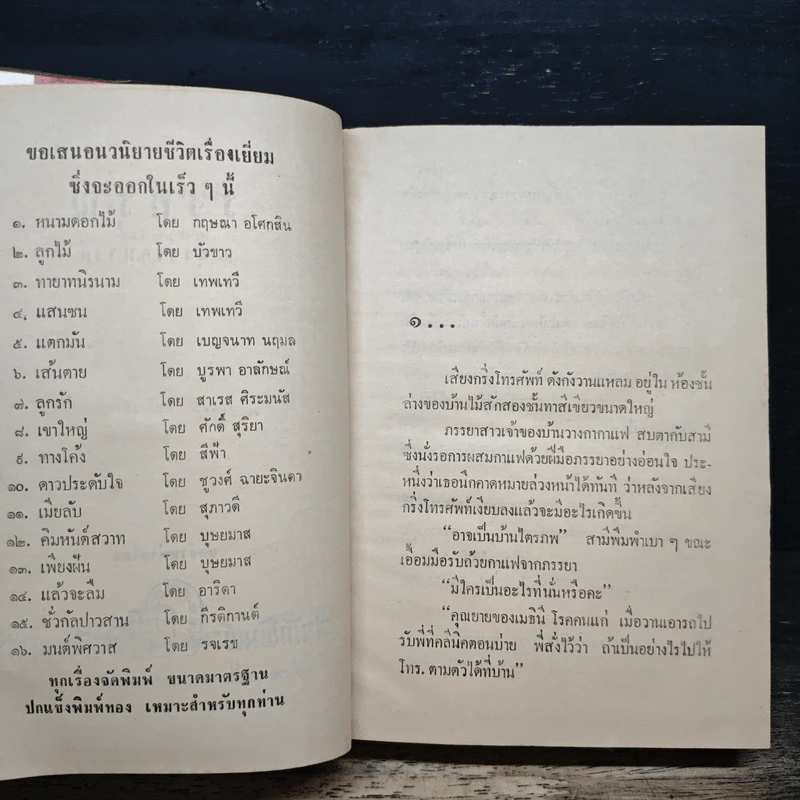 ขอเสนอนวนิยายชีวิตเรื่องเยี่ยม
ซึ่งจะออกในเร็ว ๆ นี้
๑. หนามดอกไม้ โดย กฤษณา อโศกสิน
๒. ลูกไม้ โดย บัวขาว
๓. ทายาทนิรนาม โดย เทพเทวี
๔. แสนซน โดย เทพเทวี
๕. แตกมัน โดย เบญจนาท นฤมล
๖. เส้นตาย โดย บูรพา อาลักษณ์
๗. ลูกรัก โดย สาเรส ศิระมนัส
๘. เขาใหญ่ โดย ศักดิ์ สุริยา
๙. ทางโค้ง โดย สีฟ้า
๑๐. ดาวประดับใจ โดย ชูวงศ์ ฉายะจินดา
๑๑. เมียลับ โดย สุภาวดี
๑๒. คิมหันต์สวาท โดย บุษยมาส
๑๓. เพียงฝัน โดย บุษยมาส
๑๔. แล้วจะลืม โดย อาริตา
๑๕. ชั่วกัลปาวสาน โดย กีรติกานต์
๑๖. มนต์พิศวาส โดย รจเรข
ทุกเรื่องจัดพิมพ์ ขนาดมาตรฐาน
ปกแข็งพิมพ์ทอง เหมาะสำหรับทุกท่าน
๑...
เสียงกริ่งโทรศัพท์ ดังกังวานแหลม อยู่ใน ห้องชั้น
ล่างของบ้านไม้สักสองชั้นทาสีเขียวขนาดใหญ่
ภรรยาสาวเจ้าของบ้านวางกากาแฟ สบตากับสามี
ซึ่งนั่งรอการผสมกาแฟด้วยฝีมือภรรยาอย่างอ่อนใจ ประ-
หนึ่งว่าเธอนึกคาดหมายล่วงหน้าได้ทันที ว่าหลังจากเสียง
กริ่งโทรศัพท์เงียบลงแล้วจะมีอะไรเกิดขึ้น
“อาจเป็นบ้านไตรภพ” สามีพึมพำเบา ๆ ขณะ
เอื้อมมือรับถ้วยกาแฟจากภรรยา
“มีใครเป็นอะไรที่นั่นหรือคะ”
“คุณยายของเมธินี โรคคนแก่ เมื่อวานเอารถไป
รับพี่ที่คลีนิคตอนบ่าย พี่สั่งไว้ว่า ถ้าเป็นอย่างไรไปให้
โทร. ตามตัวได้ที่บ้าน”